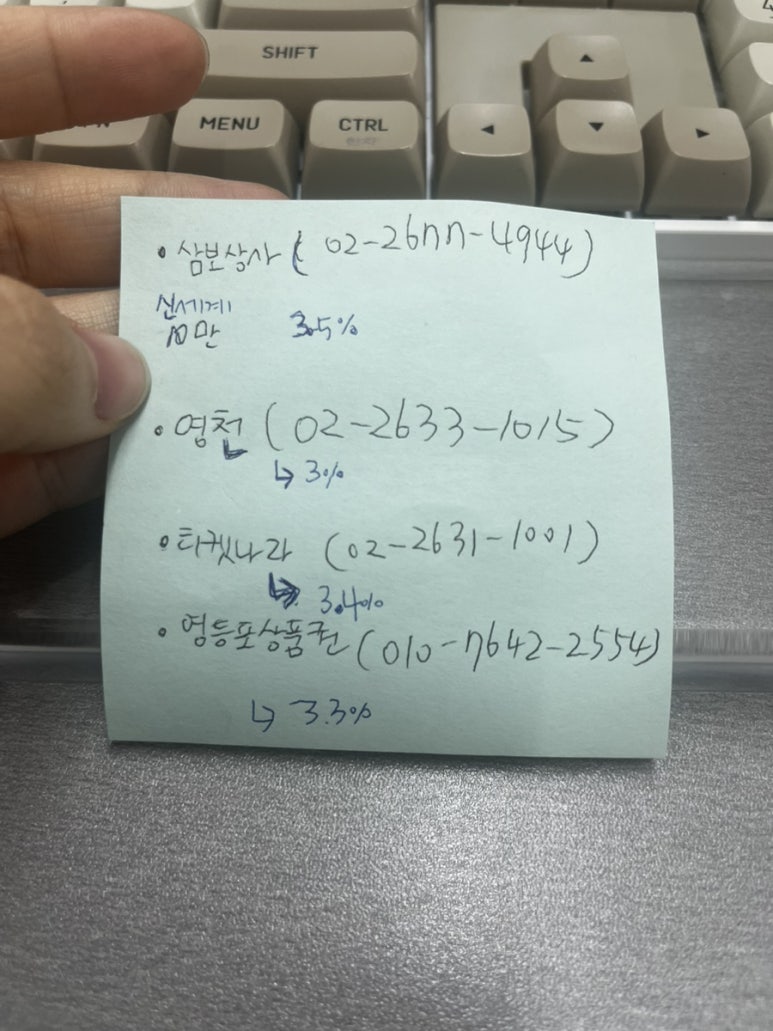 SHIFT
MENU
CTRL
• 삼보상사 (02-2677-4944)
신세계
10만 3.5%
• 영천 (02-2633-1015)
↳ 3%
• 티켓나라 (02-2631-1001)
↳ 3.4%
• 영등포상품권 (010-7642-2554)
↳ 3.3%